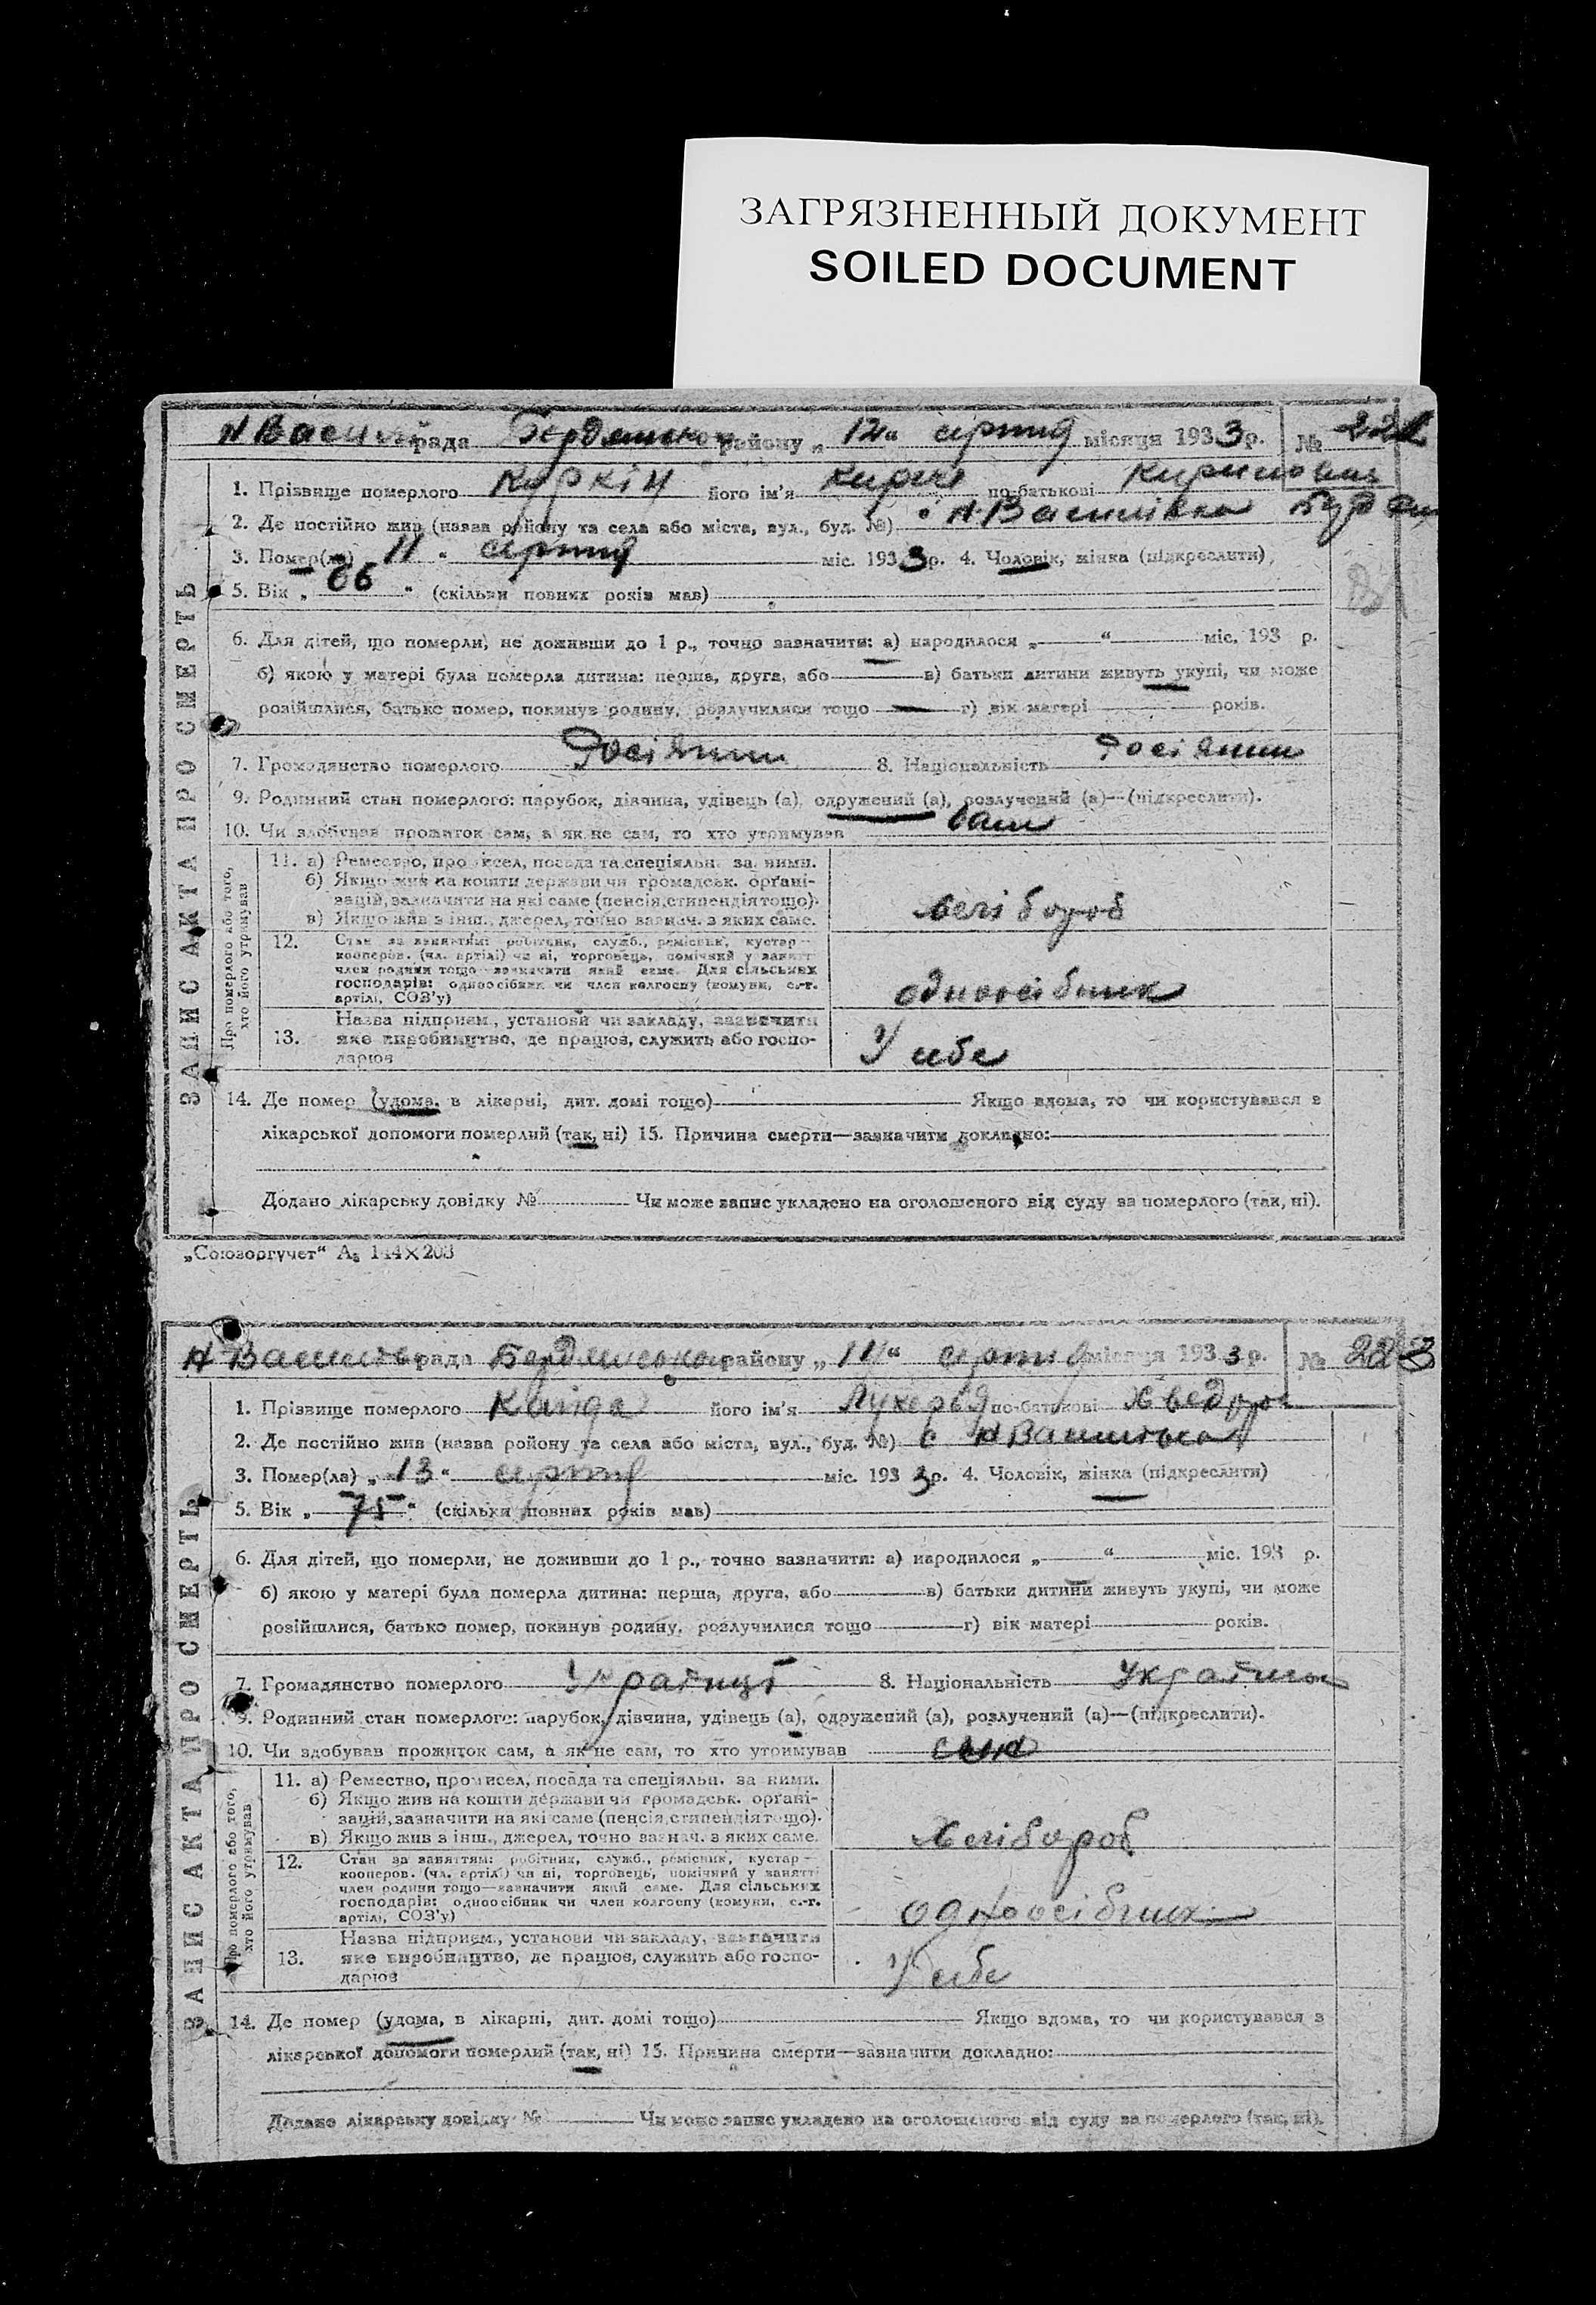 ЗАГРЯЗНЕННЫЙ ДОКУМЕНТ
SOILED DOCUMENT
рада району „12“ серпня місяця 1933 р. №
1. Прізвище померлого Куркін його ім'я по-батькові
2. Де постійно жив (назва району та села або міста, вул., буд. №) Н Василівка
3. Помер(ла) „11“ серпня міс. 1933 р. 4. Чоловік, жінка (підкреслити)
5. Вік „ “ (скільки повних років мав)
6. Для дітей, що померли, не доживши до 1 р., точно зазначити: а) народилося „ “ міс. 193 р.
б) якою у матері була померла дитина: перша, друга, або в) батьки дитини живуть укупі, чи може
розійшлися, батько помер, покинув родину, розлучилися тощо г) вік матері років.
7. Громадянство померлого Росіянин 8. Національність Росіянин
9. Родинний стан померлого: парубок, дівчина, удівець (а), одружений (а), розлучений (а)—(підкреслити).
10. Чи здобував прожиток сам, а як не сам, то хто утримував сам
ЗАПИС АКТА ПРО СМЕРТЬ
Про померлого або того,
хто його утримував
11. а) Ремество, промисел, посада та спеціяльн. за ними.
б) Якщо жив на кошти держави чи громадськ. орґані-
зацій, зазначити на які саме (пенсія, стипендія тощо).
в) Якщо жив з інш., джерел, точно зазнач. з яких саме.
хлібороб
12. Стан за заняттям: робітник, служб., ремісник, кустар—
кооперов. (чл. артілі) чи ні, торговець, помічний у занятті
член родини тощо—зазначити який саме. Для сільських
господарів: одноосібник чи член колгоспу (комуни, с.-г.
артілі, СОЗ'у)
одноосібник
13. Назва підприєм., установи чи закладу, зазначити
яке виробництво, де працює, служить або госпо-
дарює
У себе
14. Де помер (удома, в лікарні, дит. домі тощо) Якщо вдома, то чи користувався з
лікарської допомоги померлий (так, ні) 15. Причина смерти—зазначити докладно:
Додано лікарську довідку № Чи може запис укладено на оголошеного від суду за померлого (так, ні).
„Союзоргучет“ А₅ 144×203
рада району „ “ серпня місяця 1933 р. № 223
1. Прізвище померлого його ім'я Лукерія по-батькові Хведор
2. Де постійно жив (назва району та села або міста, вул., буд. №) с Н Василівка
3. Помер(ла) „13“ серпня міс. 1933 р. 4. Чоловік, жінка (підкреслити)
5. Вік „75“ (скільки повних років мав)
6. Для дітей, що померли, не доживши до 1 р., точно зазначити: а) народилося „ “ міс. 193 р.
б) якою у матері була померла дитина: перша, друга, або в) батьки дитини живуть укупі, чи може
розійшлися, батько помер, покинув родину, розлучилися тощо г) вік матері років.
7. Громадянство померлого 8. Національність
9. Родинний стан померлого: парубок, дівчина, удівець (а), одружений (а), розлучений (а)—(підкреслити).
10. Чи здобував прожиток сам, а як не сам, то хто утримував
ЗАПИС АКТА ПРО СМЕРТЬ
Про померлого або того,
хто його утримував
11. а) Ремество, промисел, посада та спеціяльн. за ними.
б) Якщо жив на кошти держави чи громадськ. орґані-
зацій, зазначити на які саме (пенсія, стипендія тощо).
в) Якщо жив з інш., джерел, точно зазнач. з яких саме.
Хлібороб
12. Стан за заняттям: робітник, служб., ремісник, кустар—
кооперов. (чл. артілі) чи ні, торговець, помічний у занятті
член родини тощо—зазначити який саме. Для сільських
господарів: одноосібник чи член колгоспу (комуни, с.-г.
артілі, СОЗ'у)
одноосібник
13. Назва підприєм., установи чи закладу, зазначити
яке виробництво, де працює, служить або госпо-
дарює
У себе
14. Де помер (удома, в лікарні, дит. домі тощо) Якщо вдома, то чи користувався з
лікарської допомоги померлий (так, ні) 15. Причина смерти—зазначити докладно:
Додано лікарську довідку № Чи може запис укладено на оголошеного від суду за померлого (так, ні).